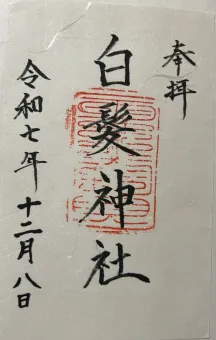 奉拝
白髮神社
令和七年 十二月八日